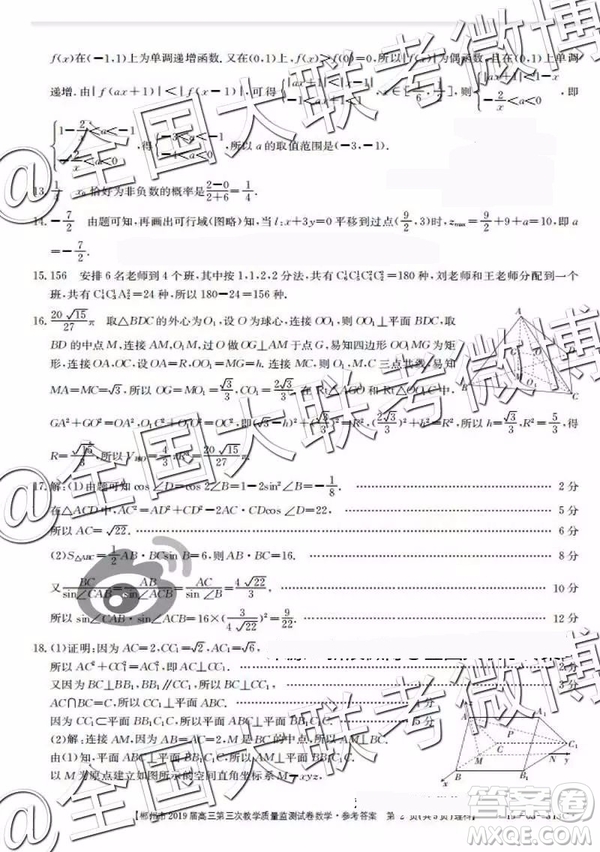 f(x)在(-1,1)上为单调递增函数.又在(0,1)上,f(x)>f(0)=0,所以|f(x)|为偶函数,且在(0,1)上单调
递增.由|f(ax+1)|<|f(x)|,可得
13. 1/4 x₀恰好为非负数的概率是(2-0)/(2+6)=1/4.
14. -7/2 由题可知,再画出可行域(图略)知,当l:x+3y=0平移到过点(9/2,3)时,z_max=9/2+9+a=10,即a
=-7/2.
15. 156 安排6名老师到4个班,其中按1,1,2,2分法,共有 =180种,刘老师和王老师分配到一个
班,共有 =24种,所以180-24=156种.
16. 20√15/27 π 取△BDC的外心为O₁,设O为球心,连接OO₁,则OO₁⊥平面BDC,取
BD的中点M,连接AM,O₁M,过O做OG⊥AM于点G,易知四边形OO₁MG为矩
形,连接OA,OC,设OA=R,OO₁=h.连接MC,则O₁,M,C三点共线,易知
MA=MC=√3,所以OG=MO₁=√3/3,CO₁=2√3/3.在Rt△AGO和Rt△OO₁C中,
GA²+GO²=OA²,O₁C²+O₁O²=OC²,即(√3-h)²+(√3/3)²=R²,(2√3/3)²+h²=R²,所以h=√3/3,R²=5/3,得
R=√15/3,所以
17. 解:(1)由题可知cos∠D=cos 2∠B=1-2sin²∠B=-1/8. 2分
在△ACD中,AC²=AD²+CD²-2AD·CDcos∠D=22, 5分
所以AC=√22. 6分
(2)S△ABC=1/2 AB·BCsin∠B=6,则AB·BC=16. 8分
又BC/sin∠CAB=AB/sin∠ACB=AC/sin∠B=4√22/3 10分
所以sin∠CAB·sin∠ACB=16×(3/(4√22))²=9/22. 12分
18. (1)证明:因为AC=√2,CC₁=2,AC₁=√6,
所以AC²+CC₁²=AC₁²,即AC⊥CC₁.
又因为BC⊥BB₁,BB₁∥CC₁,所以BC⊥CC₁. 3分
AC∩BC=C,所以CC₁⊥平面ABC.
因为CC₁⊂平面BB₁C₁C,所以平面ABC⊥平面BB₁C₁C. 5分
(2)解:连接AM,因为AB=AC=√2,M是BC的中点,所以AM⊥BC.
由(1)知,平面ABC⊥平面BB₁C₁C,所以AM⊥平面BB₁C₁C.
以M为原点建立如图所示的空间直角坐标系M-xyz,
【郴州市2019届高三第三次教学质量监测试卷数学·参考答案 第2页(共5页)理科】
@全国大联考微博
@全国大联考微博